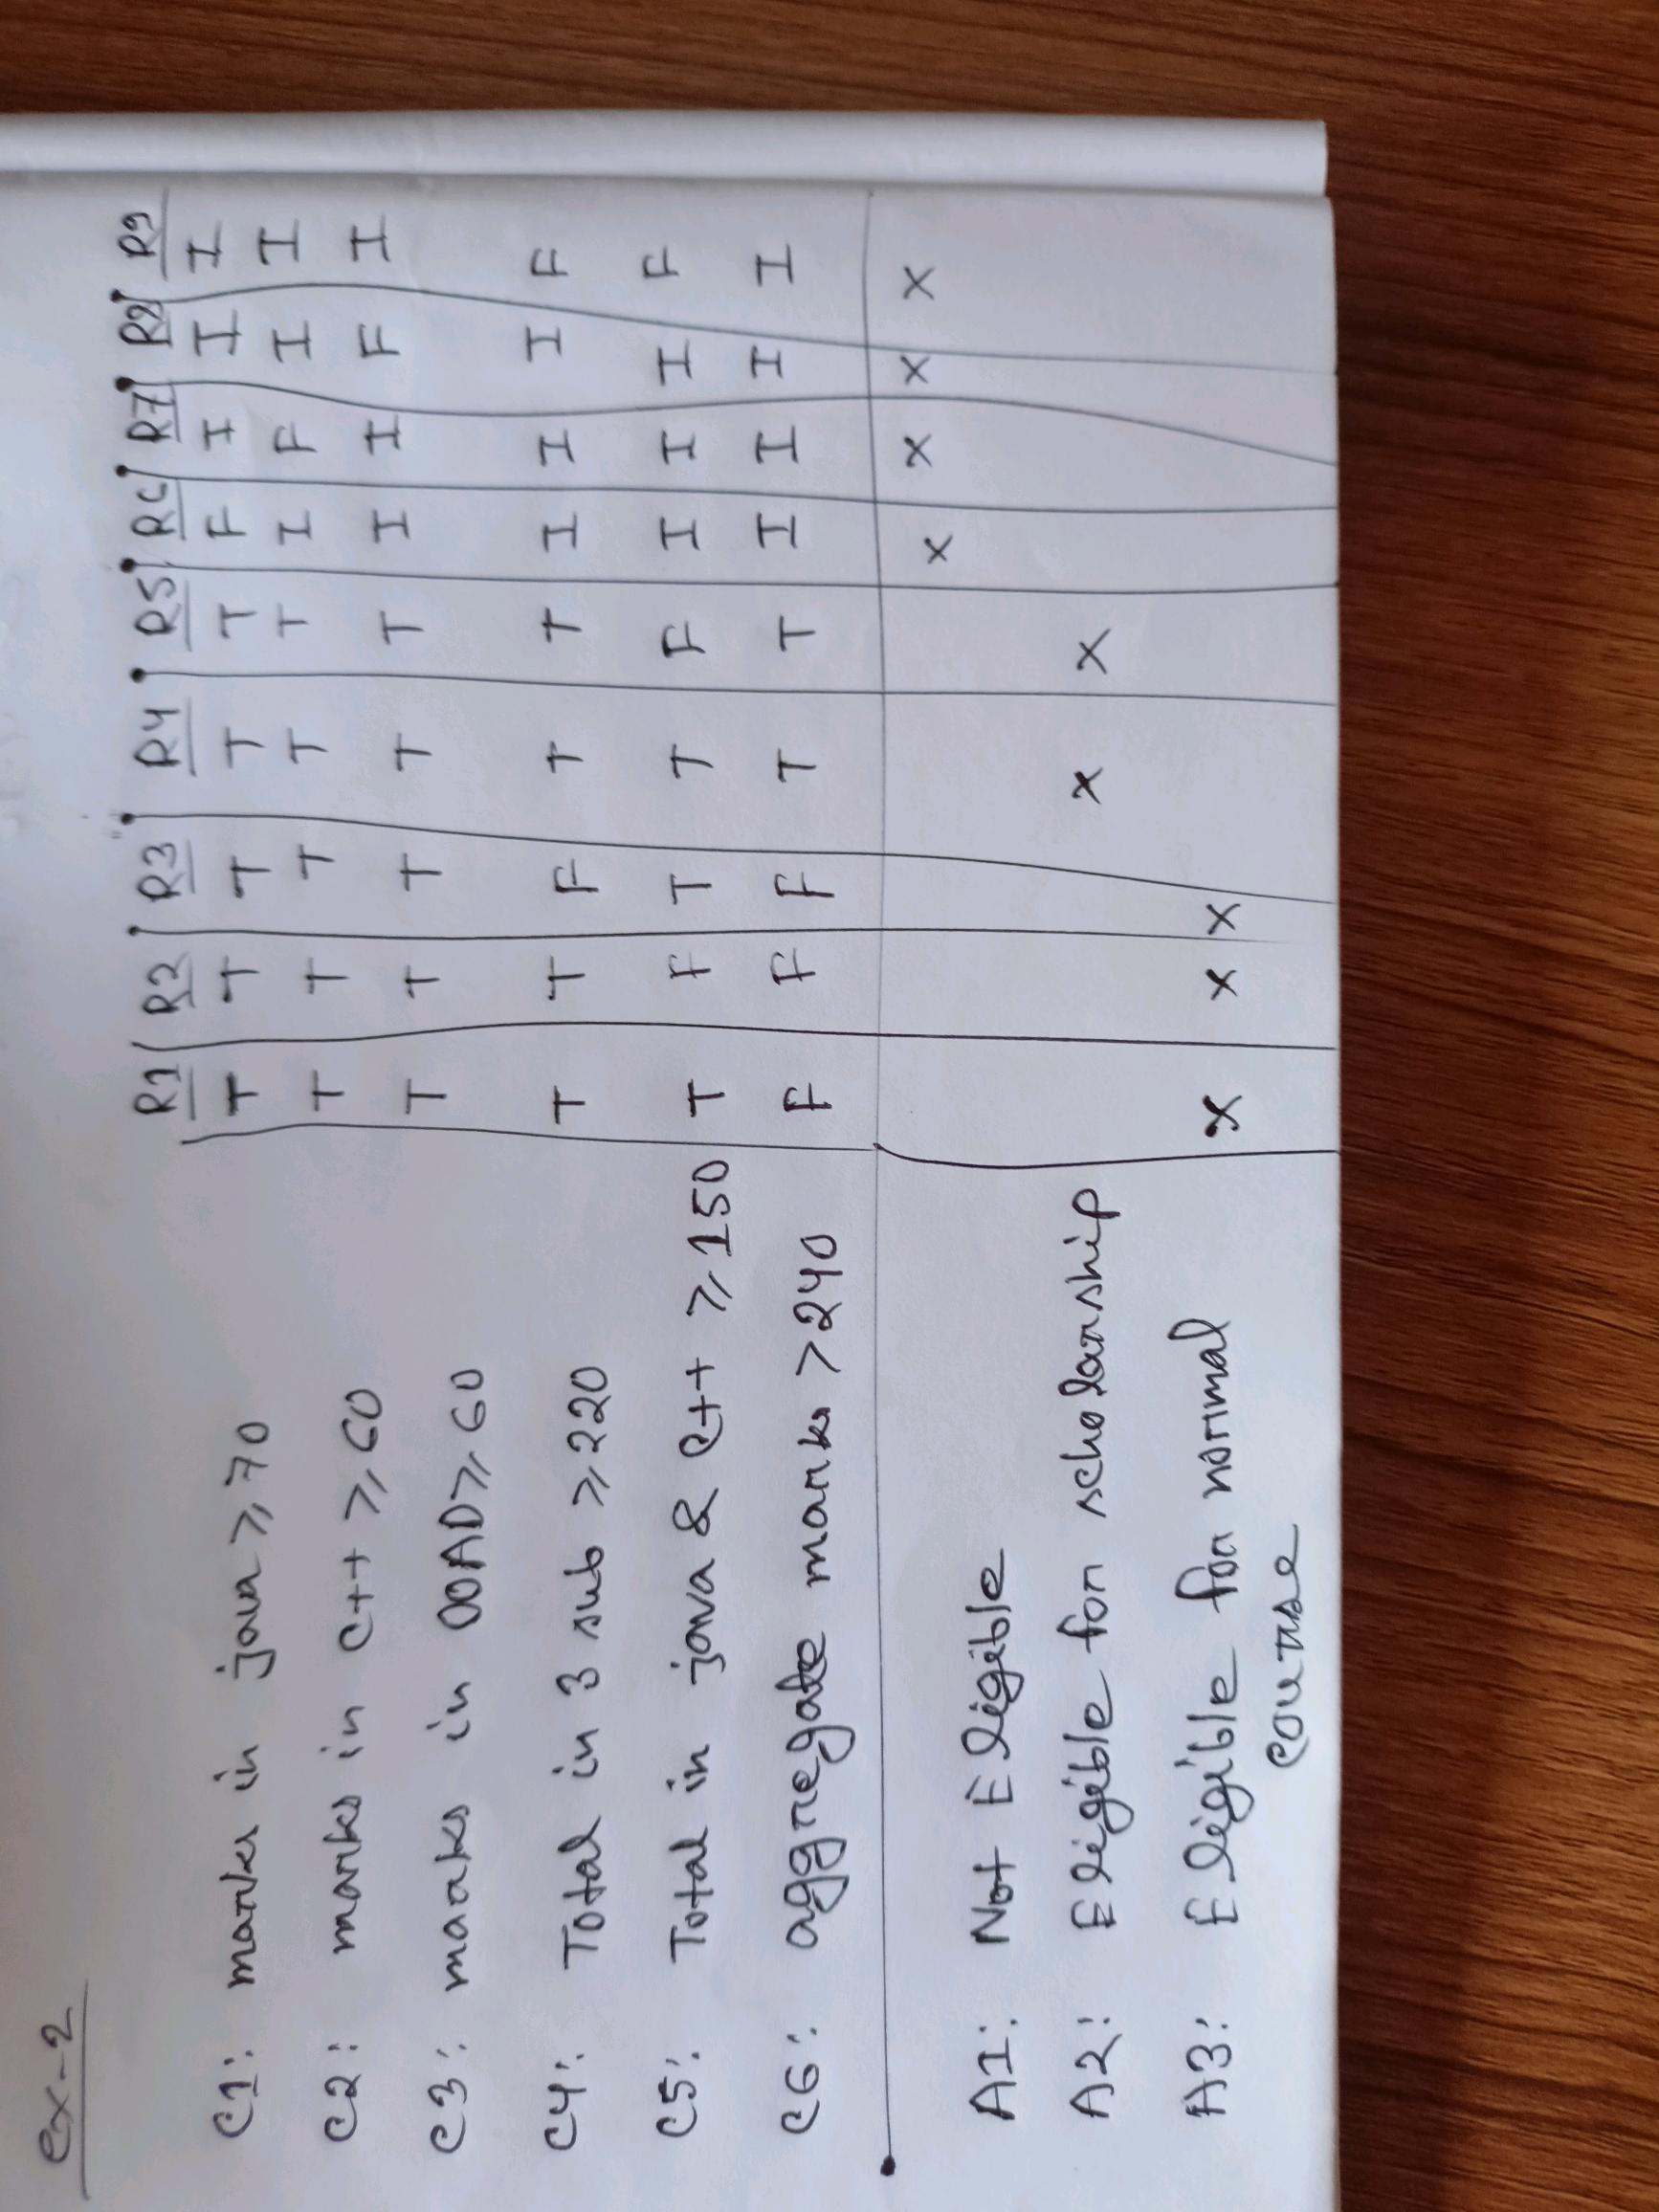 ex-2
R1 R2 R3 R4 R5 R6 R7 R8 R9
C1: marks in java ≥ 70 T T T T T F I I I
C2: marks in C++ ≥ 60 T T T T T I F I I
C3: marks in OOAD ≥ 60 T T T T T I I F I
C4: Total in 3 sub ≥ 220 T T F T T I I I F
C5: Total in java & C++ ≥ 150 T F T T F I I I F
C6: aggregate marks > 240 F F F T T I I I I
A1: Not Eligible X X X X
A2: Eligible for scholarship X X
A3: Eligible for normal X X X
course